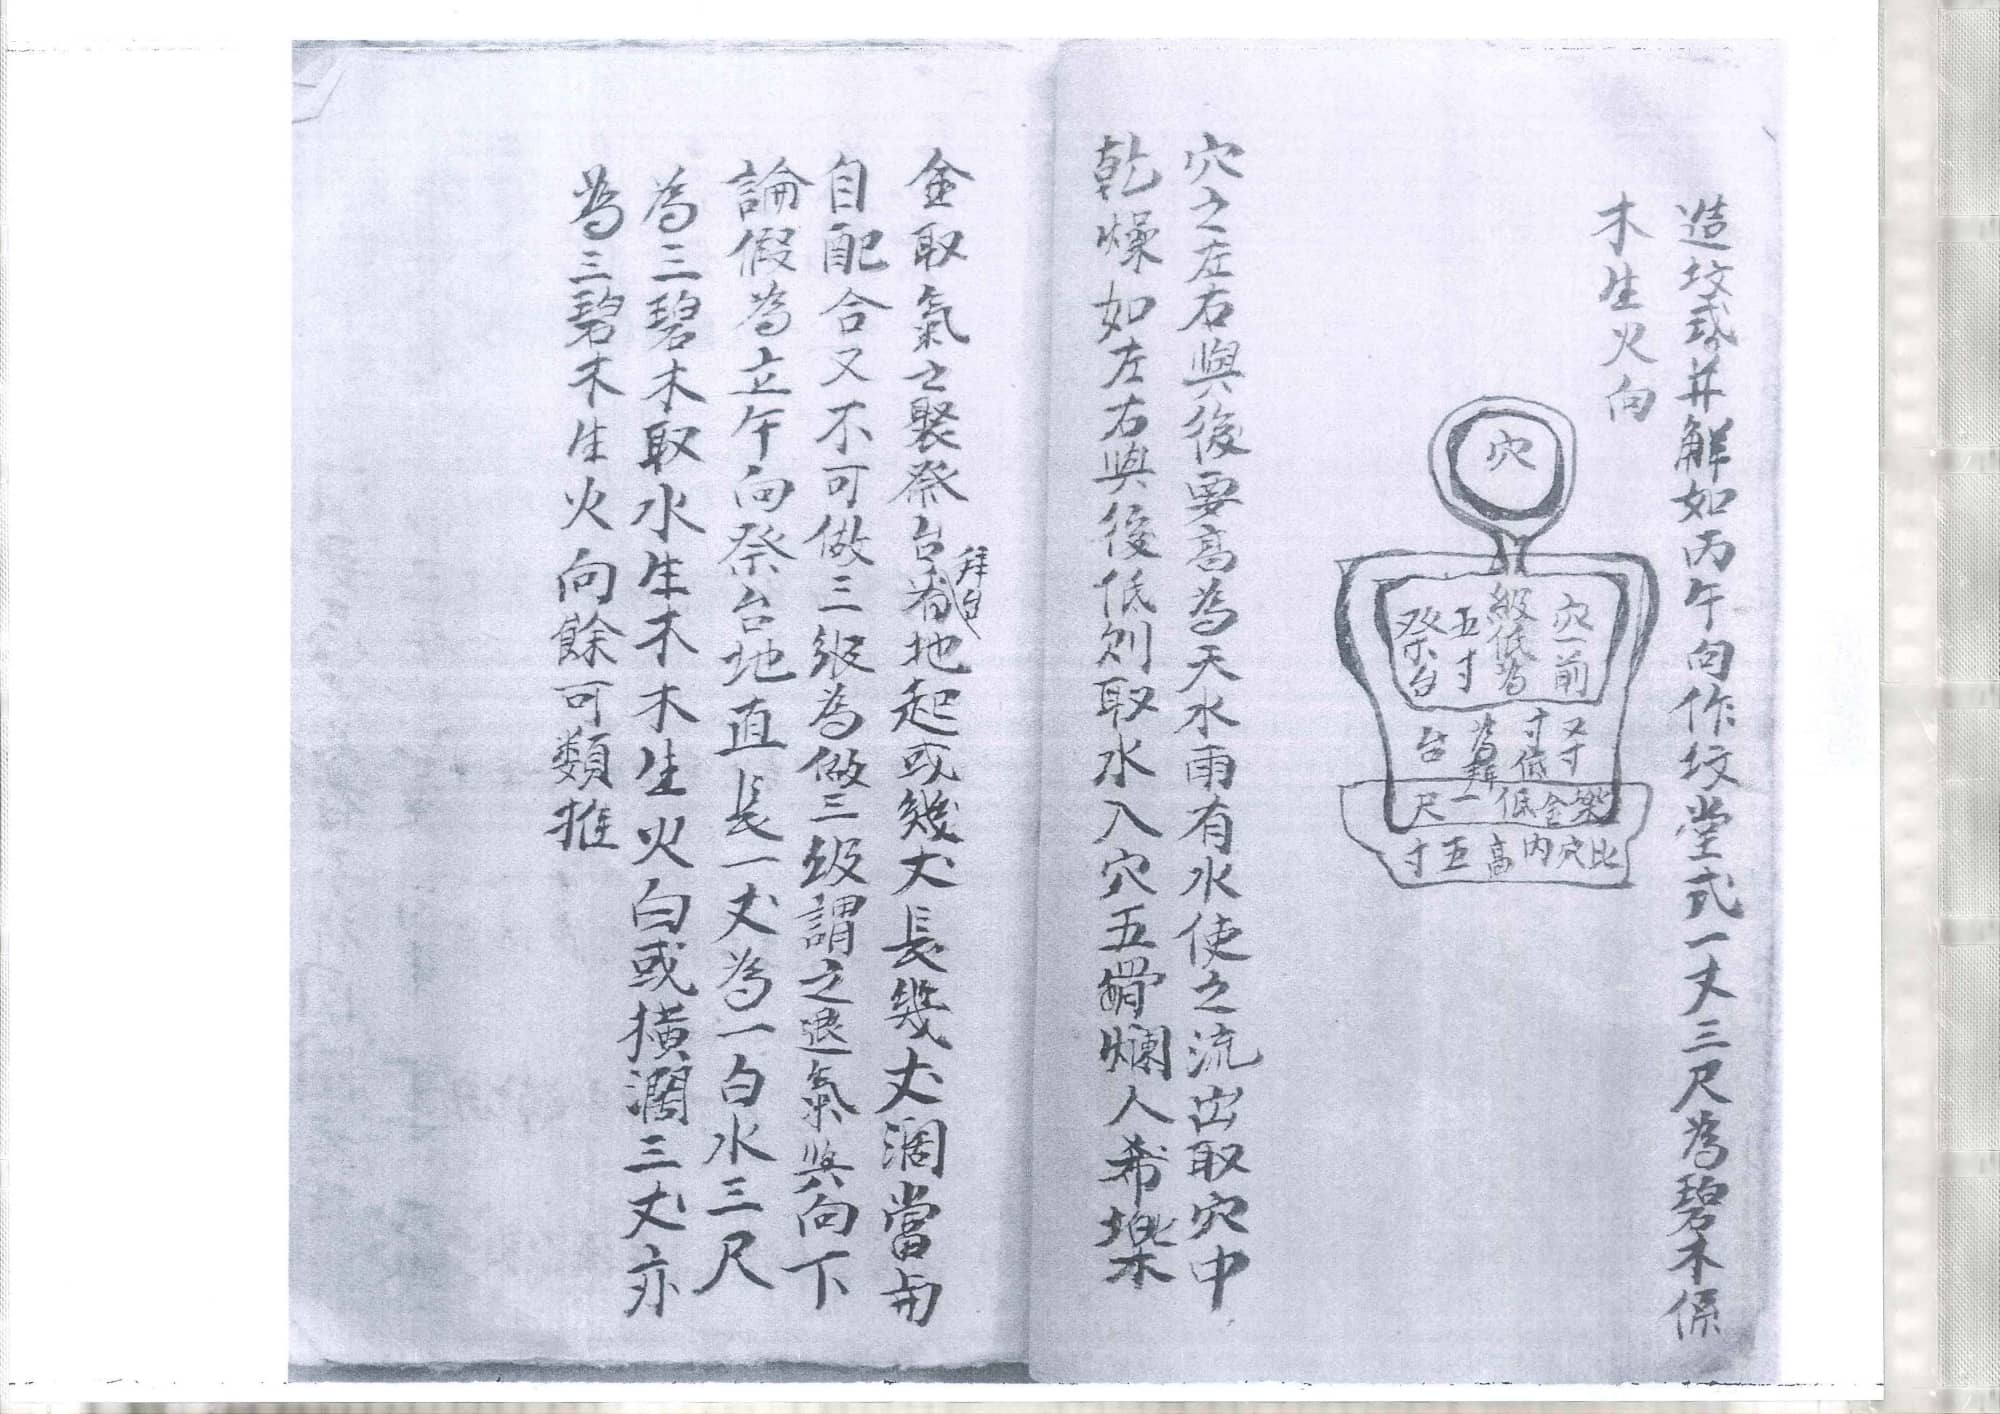 造坟式并觧如丙午向作坟堂式一丈三尺為碧木係
木生火向
穴
穴前
級低為
五寸
祭台
又寸
寸低
為拜
台
樂金低一尺
比穴內高五寸
穴之左右與後要高為天水雨有水使之流出取穴中
乾燥如左右與後低則取水入穴五骨爛人希樂
金取氣之聚祭台有地起或幾丈長幾丈濶當与
拜台
自配合又不可做三級為做三级謂之退氣與向下
論假為立午向祭台地直長一丈為一白水三尺
為三碧木取水生木木生火白或橫濶三丈亦
為三碧木生火向餘可類推